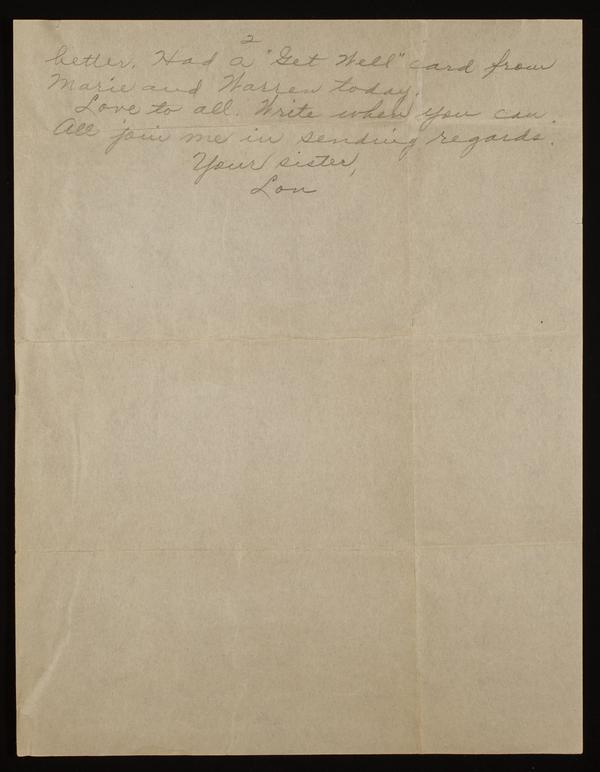 2
better. Had a "Get Well" card from
Marie and Warren today.
Love to all. Write when you can.
All join me in sending regards.
Your sister,
Lon